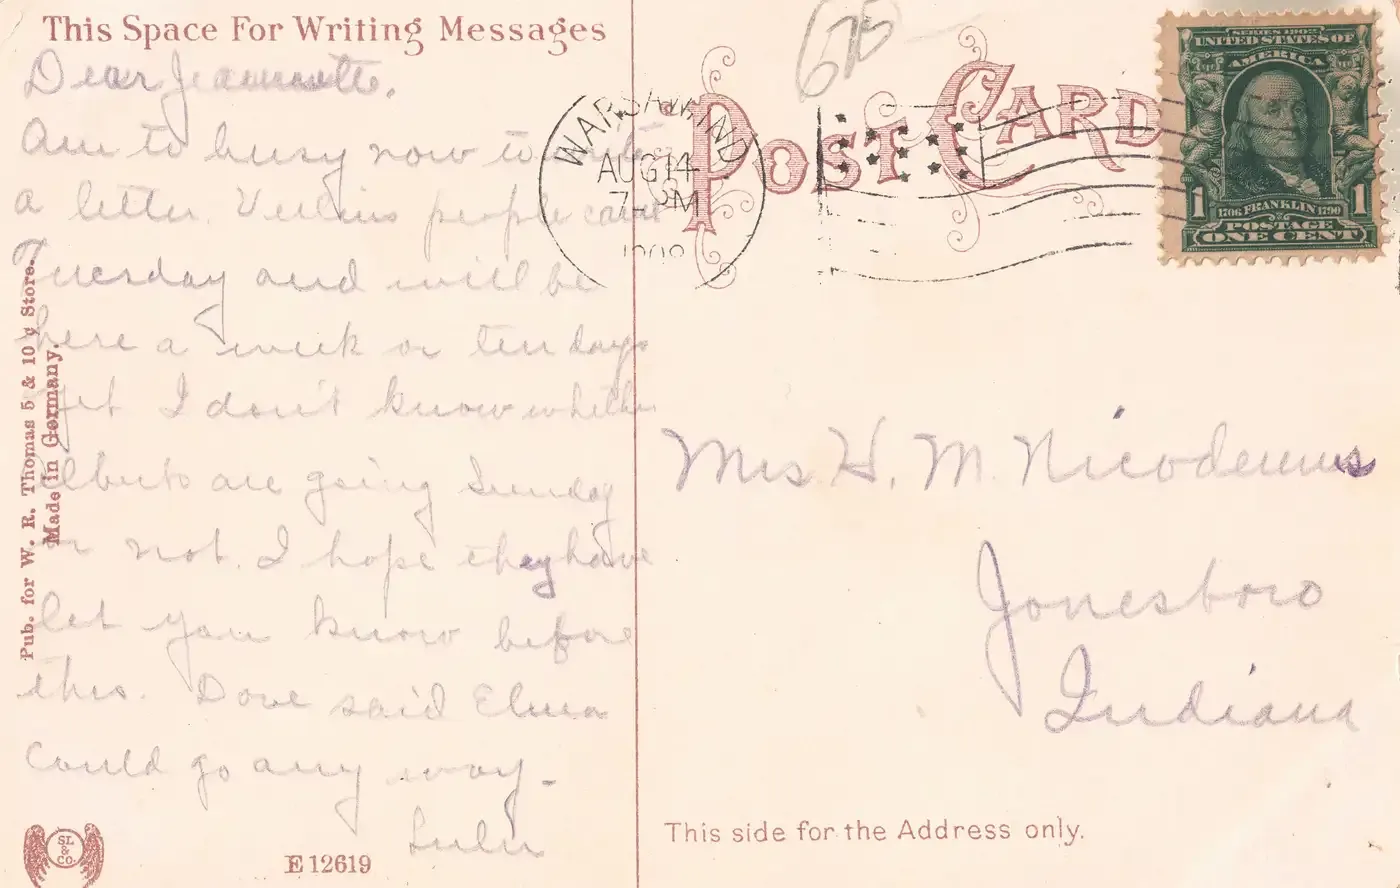 This Space For Writing Messages
Dear Jeannette.
Am to busy now to write
a letter. people came
Tuesday and will be
here a week or ten days
yet I don't know whether
are going Sunday
or not. I hope they have
let you know before
this. Dove said Elma
could go any way-
Lulu
Pub. for W. R. Thomas 5 & 10 ¢ Store.
Made in Germany.
SL & CO.
E 12619
POST CARD
675
WARSAW, IND
AUG 14
7- PM
1908
SERIES 1902
UNITED STATES OF
AMERICA
1 1
1706 FRANKLIN 1790
POSTAGE
ONE CENT
Mrs. H. M. Nicodemus
Jonesboro
Indiana
This side for the Address only.